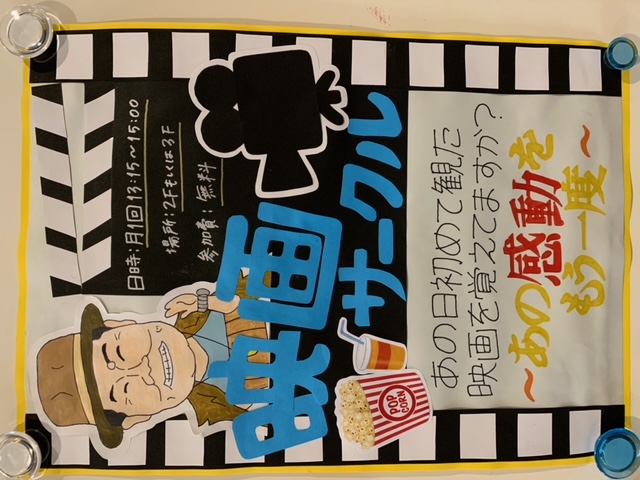 日時:月1回13:15~15:00
場所:2Fもしくは3F
参加費:無料
映画
サークル
POP
CORN
あの日初めて観た
映画を覚えてますか?
~あの感動を
もう一度~